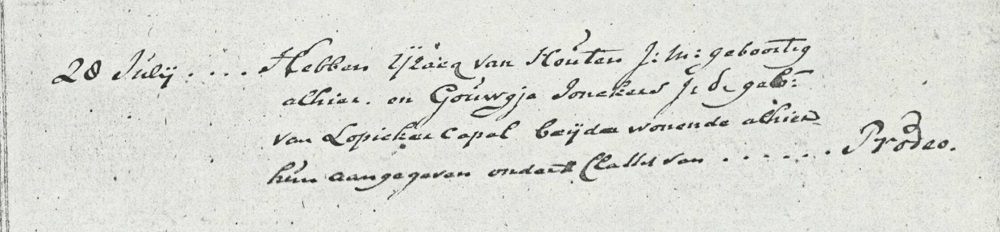 28 Julij .... Hebben Ysacq van Houten J: m: geboortig
alhier. en Gouwgje Jonekers J: d: geb:
van Lopicker Capel beijde wonende alhier
hun aangegeven onder't Classis van ...... Prodeo.